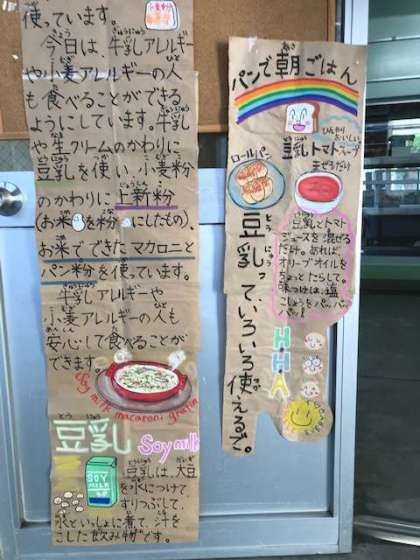 使っています。
今日は、牛乳アレルギー
や小麦アレルギーの人
も食べることができる
ようにしています。牛乳
や生クリームのかわりに
豆乳を使い、小麦粉
のかわりに上新粉
(お米を粉にしたもの)、
お米でできたマカロニと
パン粉を使っています。
牛乳アレルギーや
小麦アレルギーの人も
安心して食べることが
できます。
Soy milk macaroni gratin
豆乳 Soy milk
SOY MILK
豆乳は、大豆
を水につけて
すりつぶして、
水といっしょに煮て、汁を
こした飲み物です。
パンで朝ごはん
ロールパン
豆乳トマトスープ
まぜるだけ
豆乳とトマト
ジュースを混ぜる
だけ。あれば、
オリーブオイルを
ちょっとたらして。
味つけは、塩
こしょうをパッパッ
パッ!
豆乳って、いろいろ使えるで。
HHA